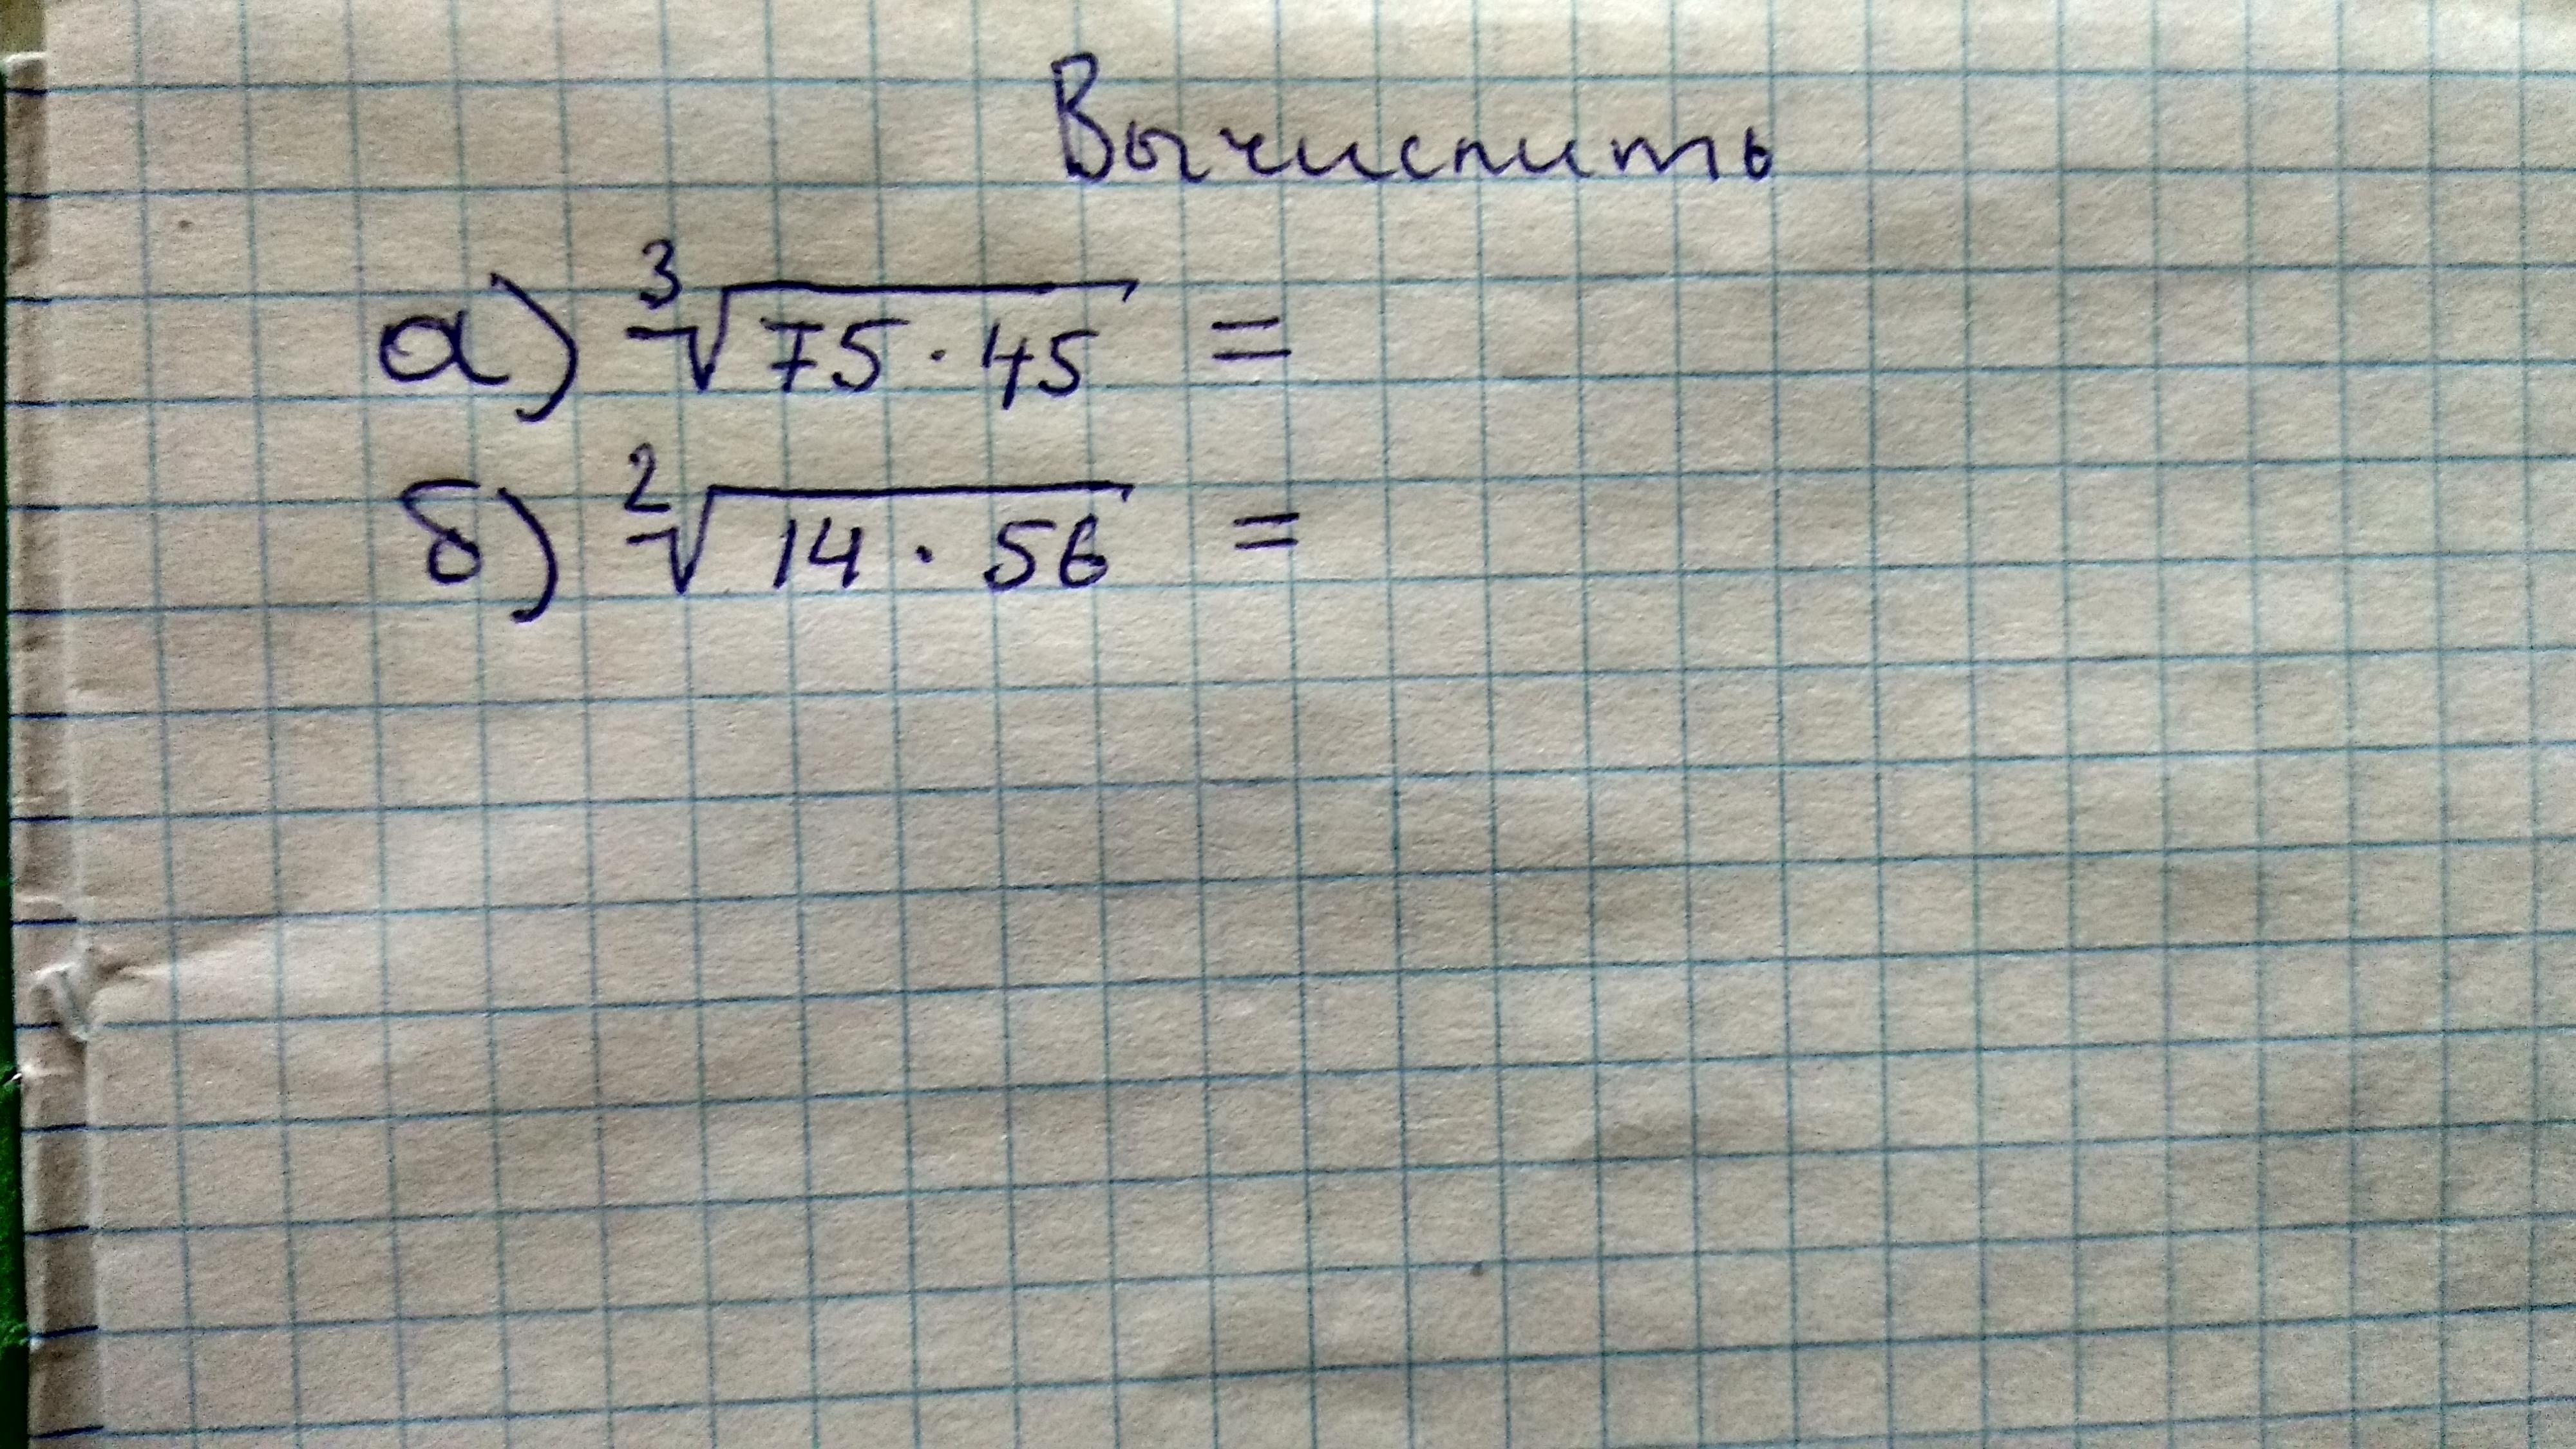 Вычислить
а) ³√75 · 45 =
б) ²√14 · 56 =